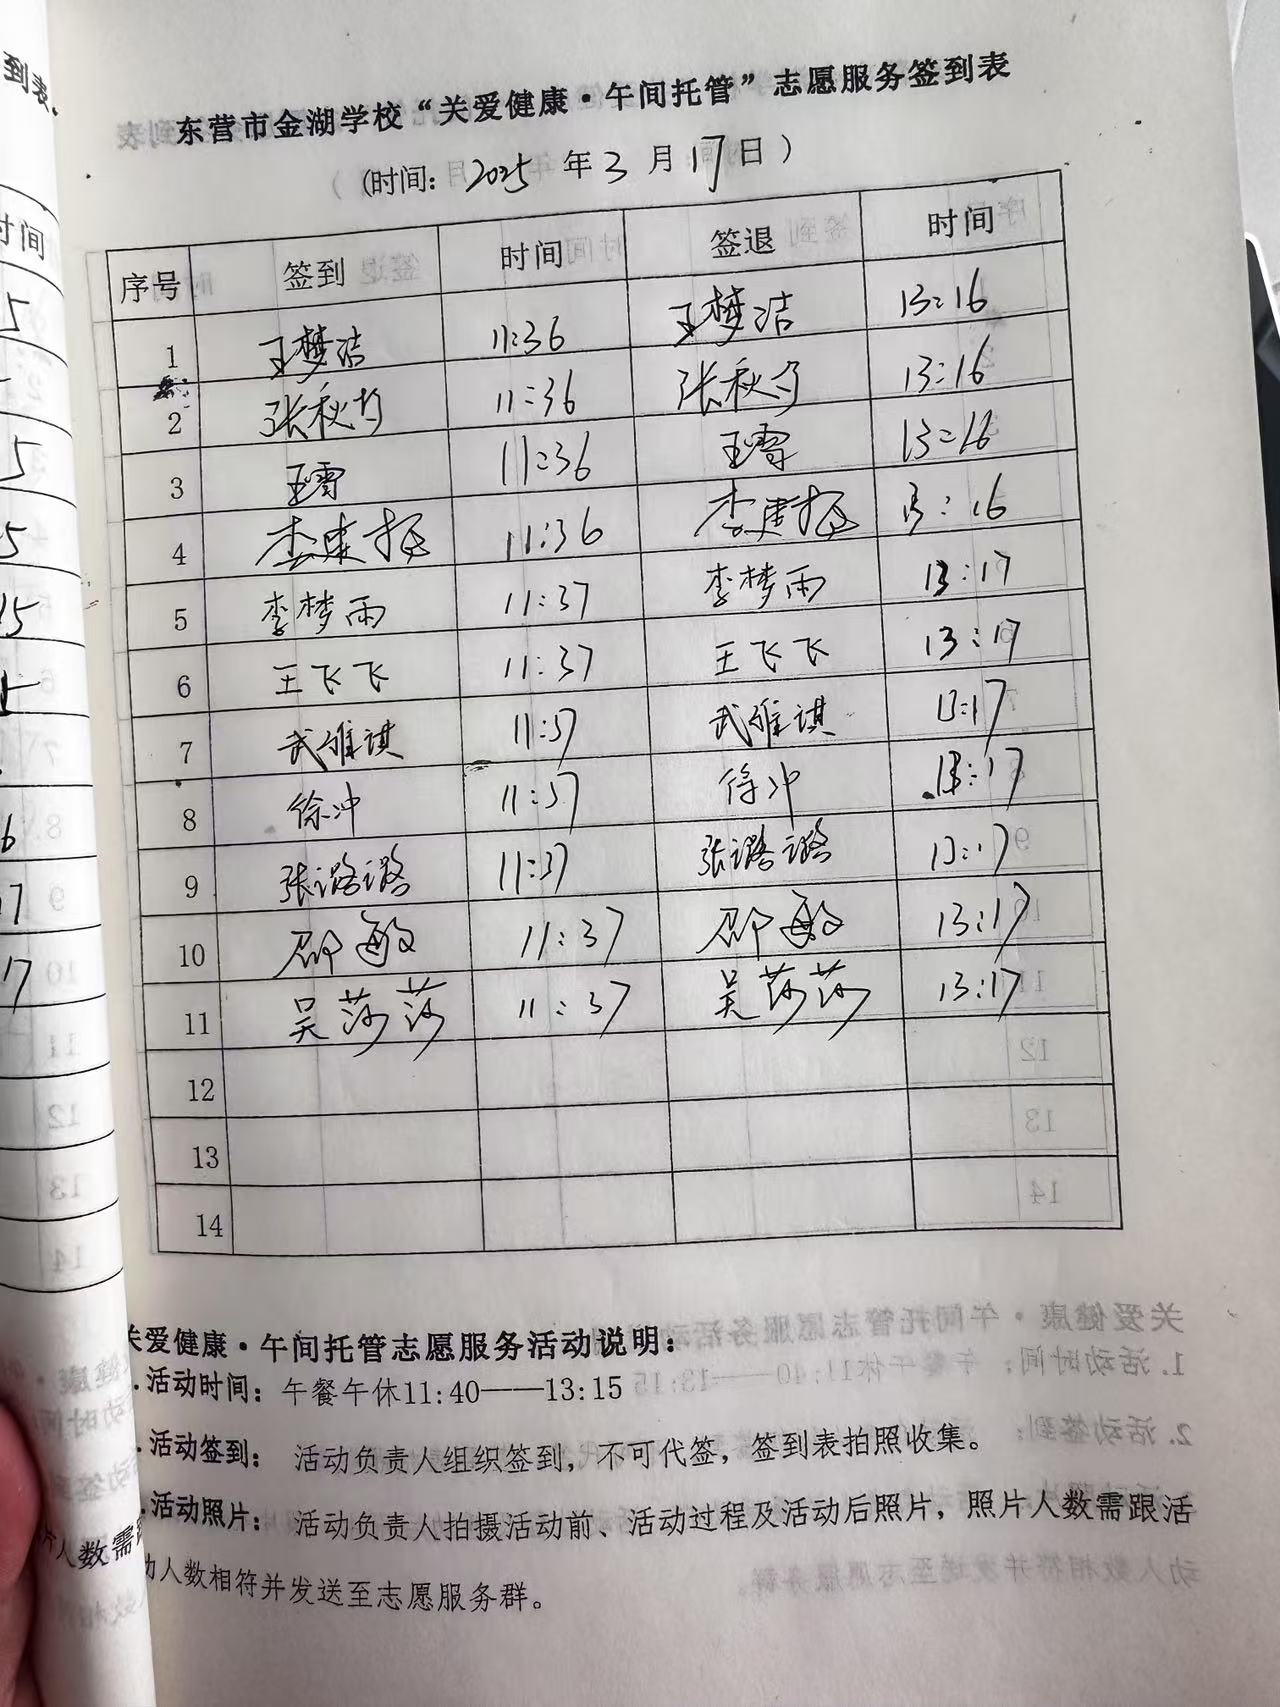 东营市金湖学校“关爱健康·午间托管”志愿服务签到表
(时间: 2025 年 3 月 17 日 )
序号 签到 时间 签退 时间
1 王梦洁 11:36 王梦洁 13:16
2 张秋均 11:36 张秋均 13:16
3 王雪 11:36 王雪 13:16
4 李建 11:36 李建 13:16
5 李梦雨 11:37 李梦雨 13:17
6 王飞飞 11:37 王飞飞 13:17
7 武维淇 11:37 武维淇 13:17
8 徐冲 11:37 徐冲 13:17
9 张潞潞 11:37 张潞潞 13:17
10 邵敏 11:37 邵敏 13:17
11 吴莎莎 11:37 吴莎莎 13:17
12
13
14
关爱健康·午间托管志愿服务活动说明:
.活动时间: 午餐午休11:40——13:15
.活动签到: 活动负责人组织签到, 不可代签, 签到表拍照收集。
.活动照片: 活动负责人拍摄活动前、活动过程及活动后照片, 照片人数需跟活
动人数相符并发送至志愿服务群。